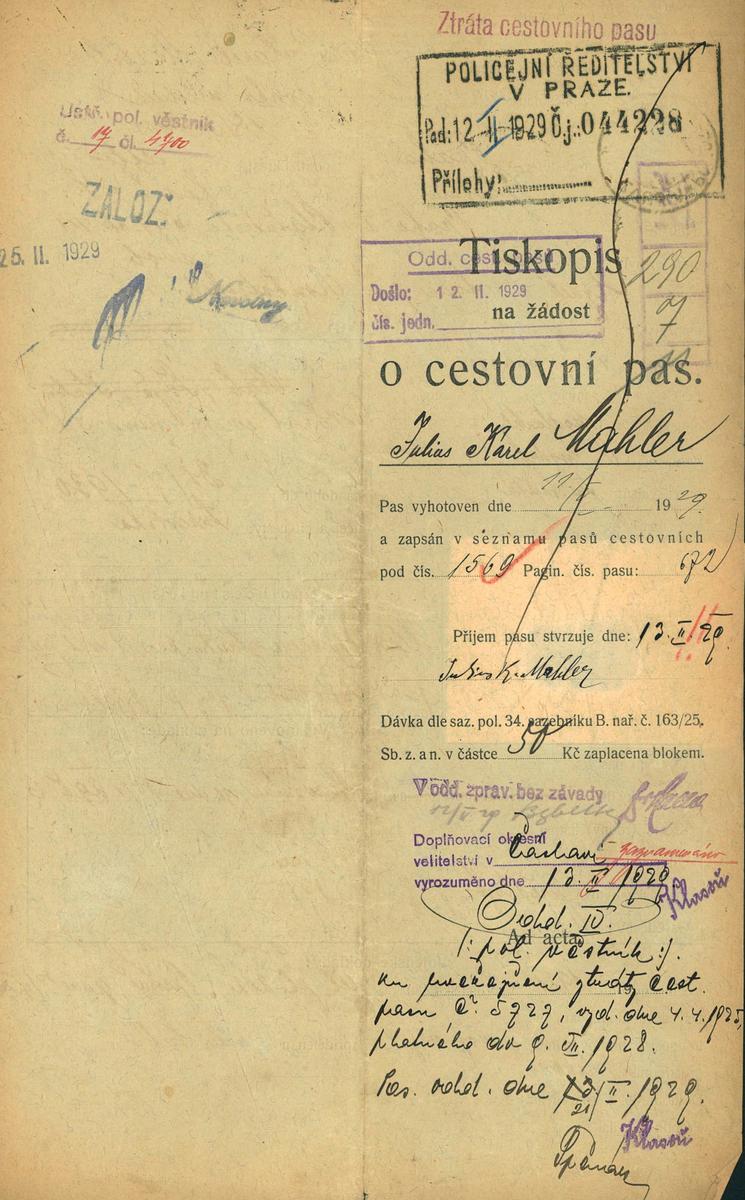 Ztráta cestovního pasu
POLICEJNÍ ŘEDITELSTVÍ
V PRAZE.
Pad: 12 II 1929 Čj.: 044228
Přílohy:
Ústř. pol. věstník
č. 17 čl. 4700
ZALOŽ:
25. II. 1929
Tiskopis
Odd. cest. pasů
Došlo: 12. II. 1929
čís. jedn.
na žádost
290
7
o cestovní pas.
Julius Karel Mahler
Pas vyhotoven dne 1929.
a zapsán v seznamu pasů cestovních
pod čís. 1569 Pagin. čís. pasu: 672
Příjem pasu stvrzuje dne: 13. II. 29
Julius K. Mahler
Dávka dle saz. pol. 34. sazebníku B. nař. č. 163/25.
Sb. z. a n. v částce 50 Kč zaplacena blokem.
V odd. zprav. bez závady
Doplňovací okresní
velitelství v Čáslavi zaznamenáno
vyrozuměno dne 13. II. 1929
Klasou
Odd. IV.
Ad acta
/: pol. věstník :/.
ku uveřejnění ztráty cest.
pasu č. 5727, vyd. dne 4. 4. 1925,
platného do 9. VII. 1928.
Pas. odd. dne 21/II. 1929.
Klasou